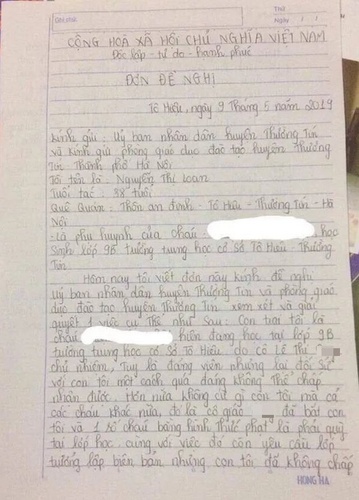 Thứ
Ngày / /
CỘNG HOÀ XÃ HỘI CHỦ NGHĨA VIỆT NAM
Độc lập - tự do - hạnh phúc
ĐƠN ĐỀ NGHỊ
Tô Hiệu, ngày 9 Tháng 5 năm 2019
Kính gửi: Uỷ ban nhân dân huyện Thường Tín
và kính gửi phòng giáo dục đào tạo huyện Thường
Tín Thành phố Hà Nội
Tôi tên là: Nguyễn Thị Loan
Tuổi tác: 38 tuổi
Quê Quán: Thôn an định - Tô Hiệu - Thường Tín - Hà
Nội
- Là phụ huynh của cháu học
Sinh lớp 9B trường trung học cơ Sở Tô Hiệu - Thường
Tín
Hôm nay tôi viết đơn này kính đề nghị
Uỷ ban nhân dân huyện Thường Tín và phòng giáo
dục đào tạo huyện Thường Tín xem xét và giải
quyết 1 việc cụ Thể như Sau: Con trai tôi là
cháu hiện đang học tại lớp 9B
trường trung học cơ Sở Tô Hiệu do cô Lê Thị
chủ nhiệm, Tuy là đảng viên nhưng lại đối Sử
với con tôi một cách quá đáng không Thể chấp
nhận được. Hơn nữa không cứ gì con tôi mà cả
các cháu khác nữa, đó là cô giáo đã bắt con
tôi và 1 số cháu bằng hình thức phạt là phải quỳ
tại lớp học, cùng với việc đó còn yêu cầu lớp
trưởng lập biên bản nhưng con tôi đã không chấp
HONG HA